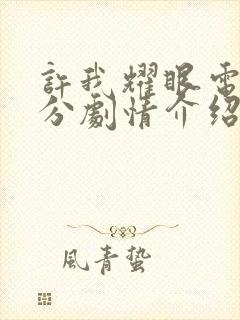 許我耀眼電
分劇情介紹
風青蟄